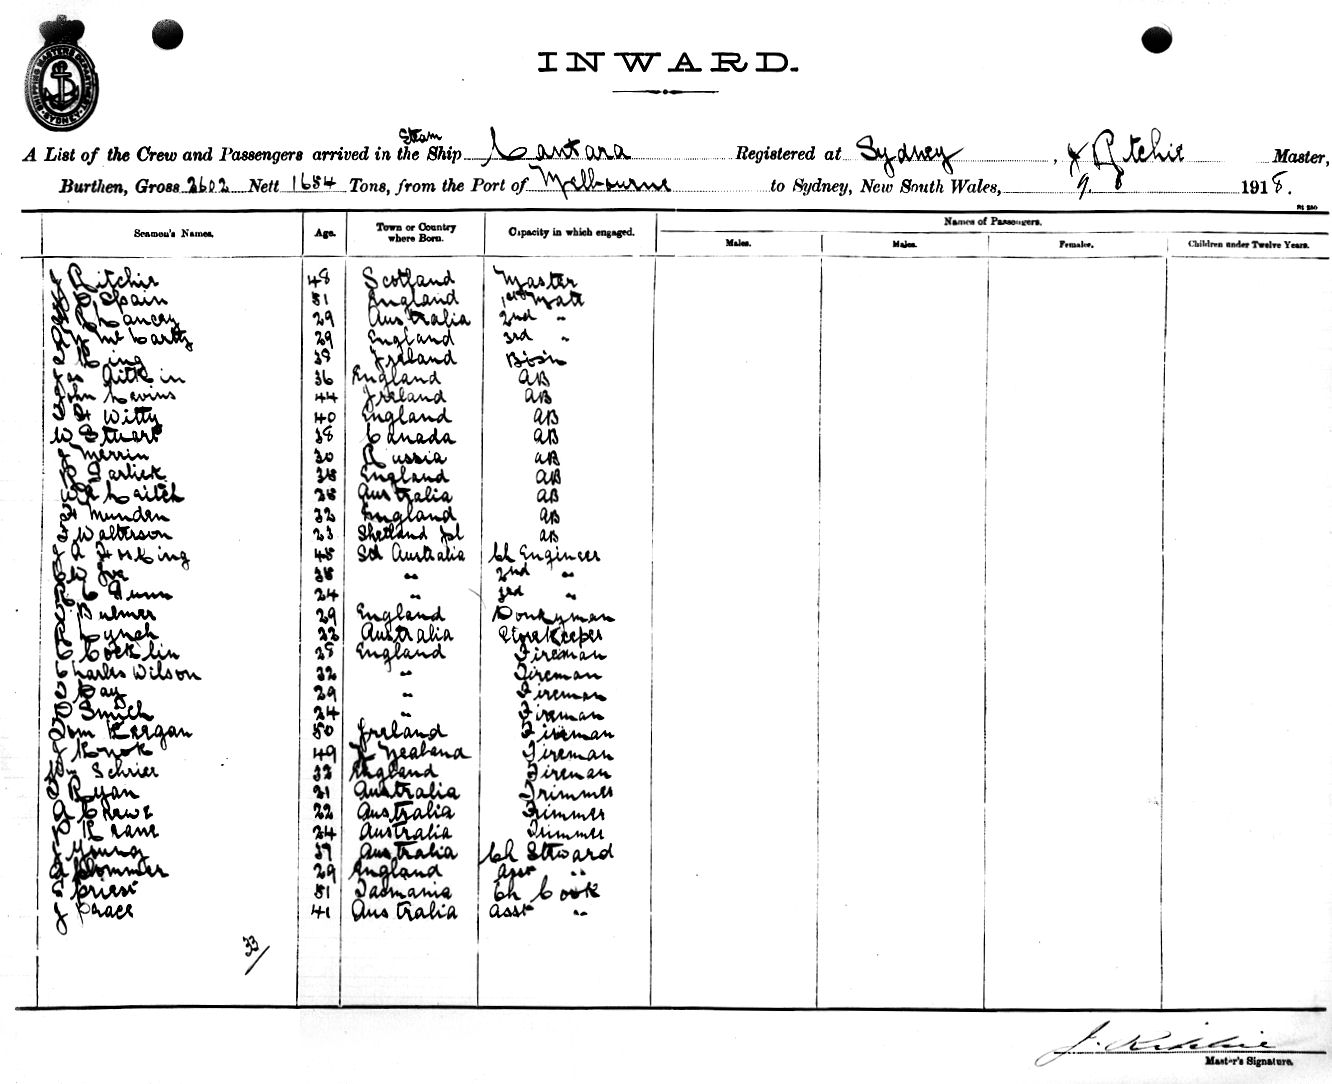 SHIPPING MASTERS DEPARTMENT SYDNEY
INWARD.
Steam
A List of the Crew and Passengers arrived in the Ship Cantara Registered at Sydney, J Ritchie Master,
Burthen, Gross 2602 Nett 1654 Tons, from the Port of Melbourne to Sydney, New South Wales, 9. 8 1918.
Seamen's Names. Age. Town or Country where Born. Capacity in which engaged. Names of Passengers.
Males. Males. Females. Children under Twelve Years.
J Ritchie 48 Scotland Master
Spain 51 England 1st Mate
Lancey 29 Australia 2nd "
McCarthy 29 England 3rd "
King 38 Ireland Bosn
Aitkin 36 England AB
John Nevins 44 Ireland AB
H Witty 40 England AB
W Stuart 38 Canada AB
Merrin 30 Russia AB
Garlick 38 England AB
Laitch 28 Australia AB
Munden 32 England AB
Walterson 23 Shetland Isl AB
Hosking 48 Sth Australia Ch Engineer
38 " 2nd "
Dunn 24 " 3rd "
Bulmer 29 England Donkyman
Lynch 22 Australia Storekeeper
Cocklin 28 England Fireman
Charles Wilson 32 " Fireman
Day 29 " Fireman
Smith 24 " Fireman
Tom Keegan 50 Ireland Fireman
Knok 49 N Zealand Fireman
Schrier 32 England Fireman
Ryan 21 Australia Trimmer
Crewe 22 Australia Trimmer
Krane 24 Australia Trimmer
Young 37 Australia Ch Steward
Plommer 29 England Asst "
Priest 51 Tasmania Ch Cook
J Grace 41 Australia Asst "
33/
J. Ritchie
Master's Signature.